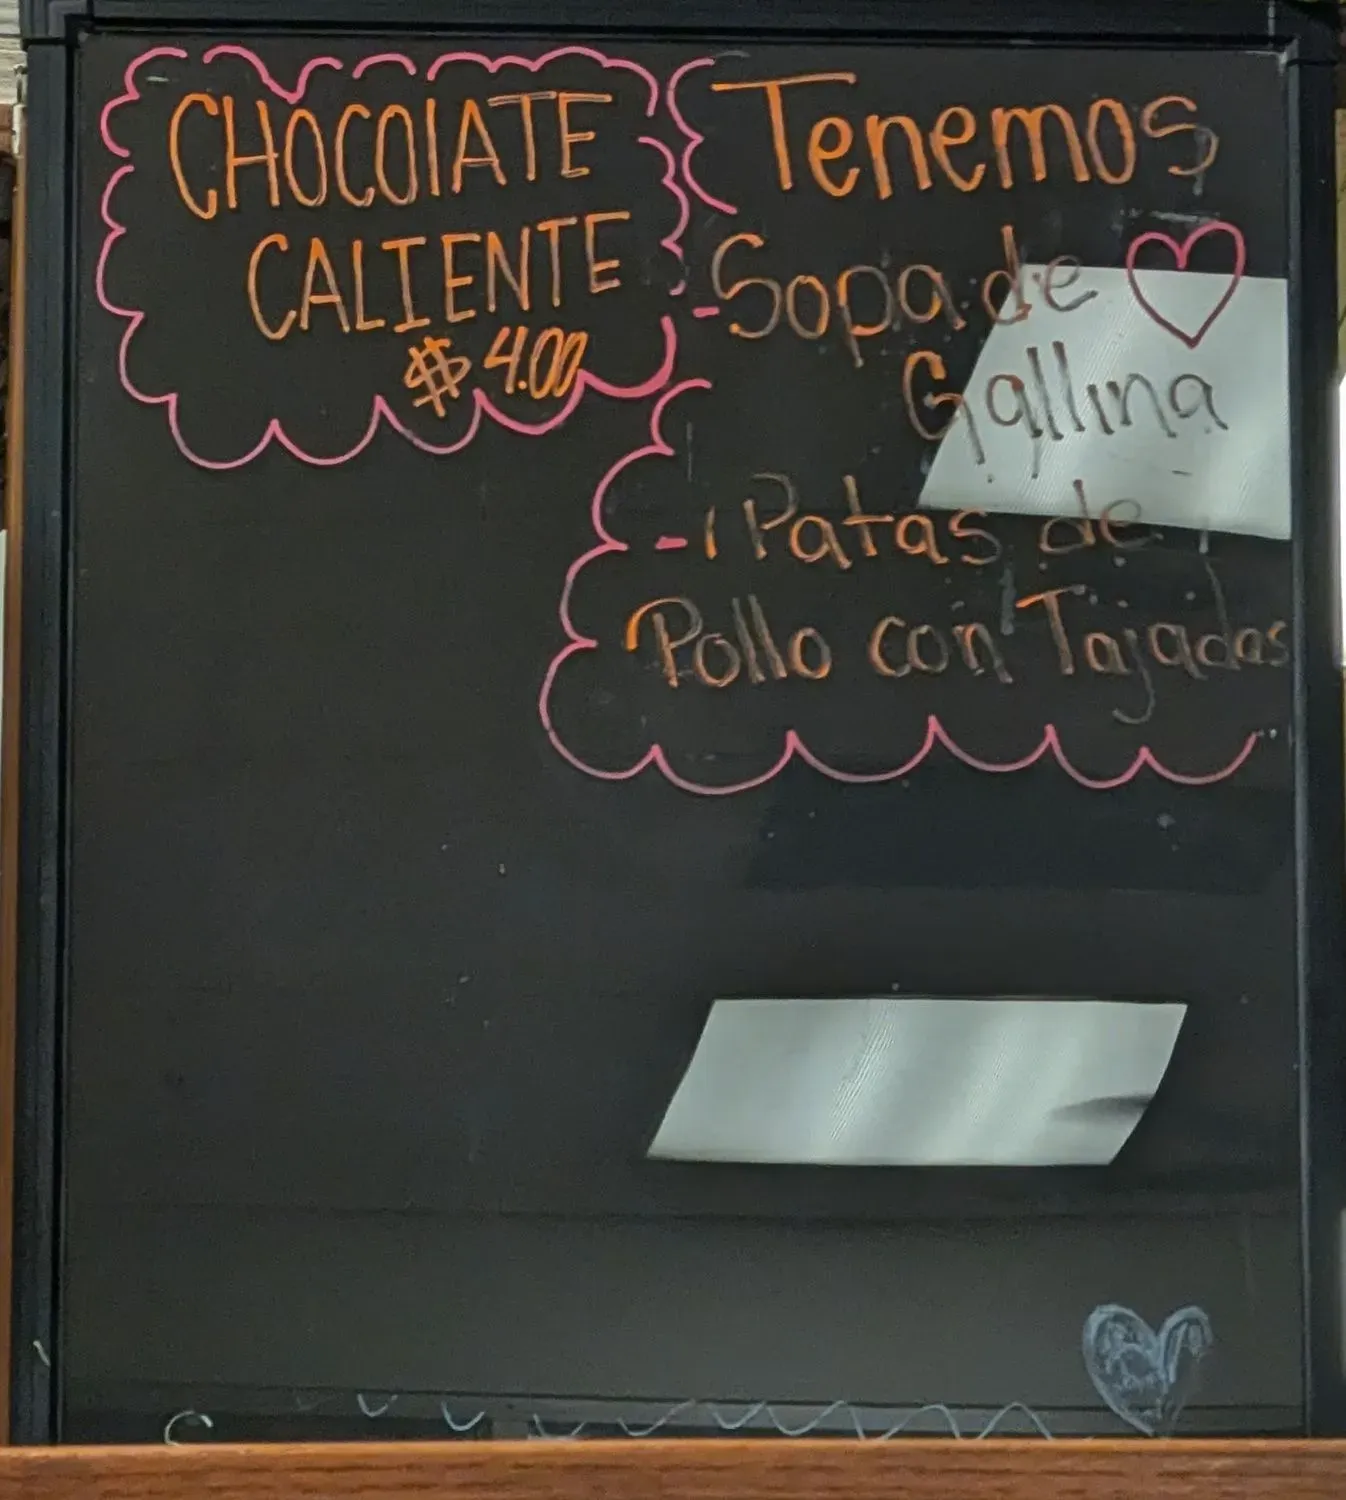 CHOCOlATE
CALIENTE
$ 4.00
Tenemos
-Sopa de
Gallina
- Patas de
Pollo con Tajadas